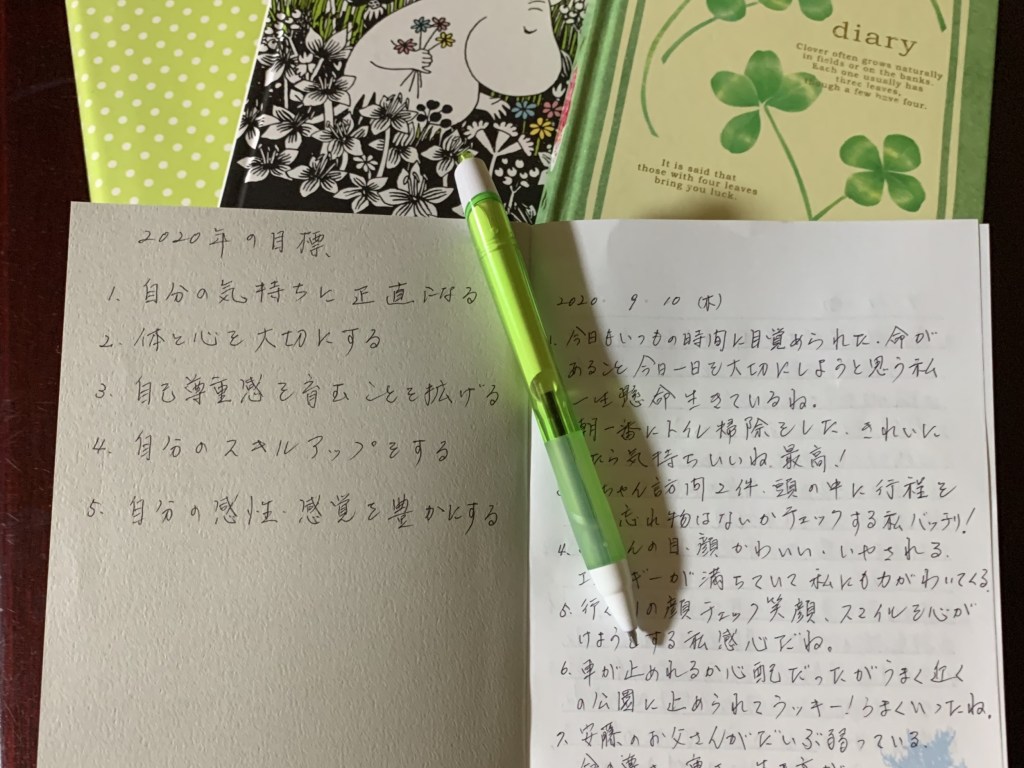 diary
Clover often grows naturally
in fields or on the banks.
Each one usually has
three leaves,
though a few have four.
It is said that
those with four leaves
bring you luck.
2020年の目標
1. 自分の気持ちに正直になる
2. 体と心を大切にする
3. 自己尊重感を育むことを拡げる
4. 自分のスキルアップをする
5. 自分の感性・感覚を豊かにする
2020. 9. 10 (木)
1. 今日もいつもの時間に目覚められた。命が
あること今日一日を大切にしようと思う私
一生懸命生きているね。
朝一番にトイレ掃除をした。きれいに
たら気持ちいいね。最高!
ちゃん訪問2件。頭の中に行程を
忘れ物はないかチェックする私バッチリ!
4. んの目・顔かわいい。いやされる。
エ ギーが満ちていて私にも力がわいてくる
5. 行く の顔チェック笑顔、スマイルを心が
けようとする私感心だね。
6. 車が止めれるか心配だったがうまく近く
の公園に止められてラッキー!うまくいったね。
7. 安藤のお父さんがだいぶ弱っている。